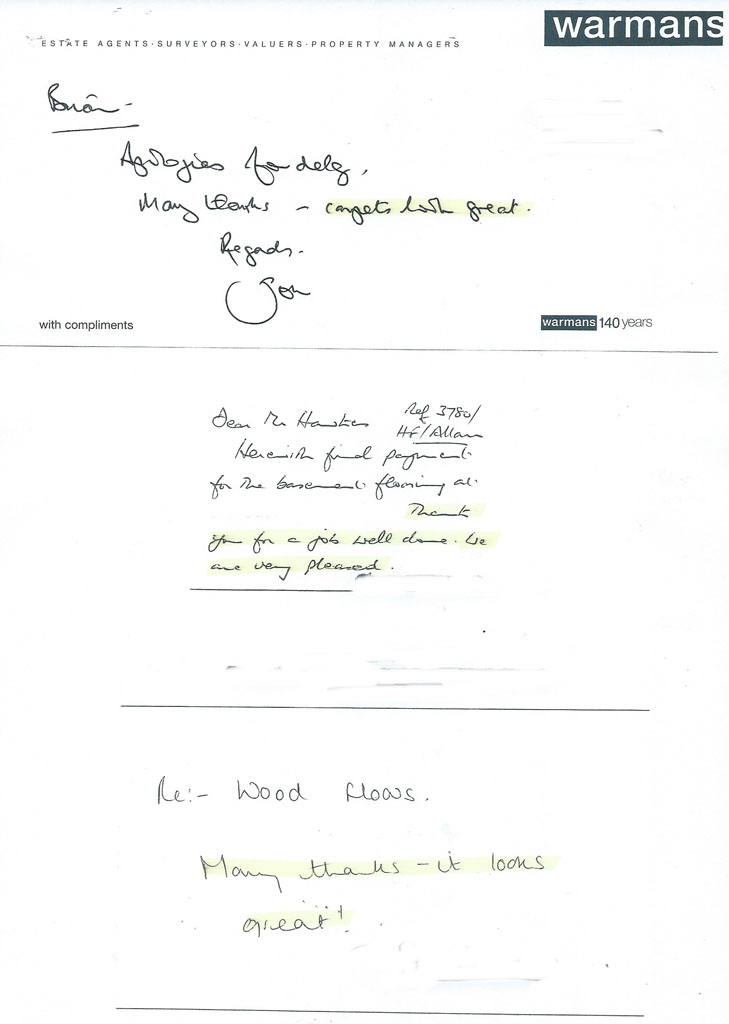 ESTATE AGENTS·SURVEYORS·VALUERS·PROPERTY MANAGERS
warmans
Brian -
Apologies for delay,
Many thanks - carpets look great.
Regards.
Jon
with compliments
warmans 140 years
Dear Mr Hawkins
Ref 3780/
HF/Allam
Herewith final payment
for the basement flooring at
Thank
you for a job well done. We
are very pleased.
Re:- Wood Floors.
Many thanks - it looks
great!